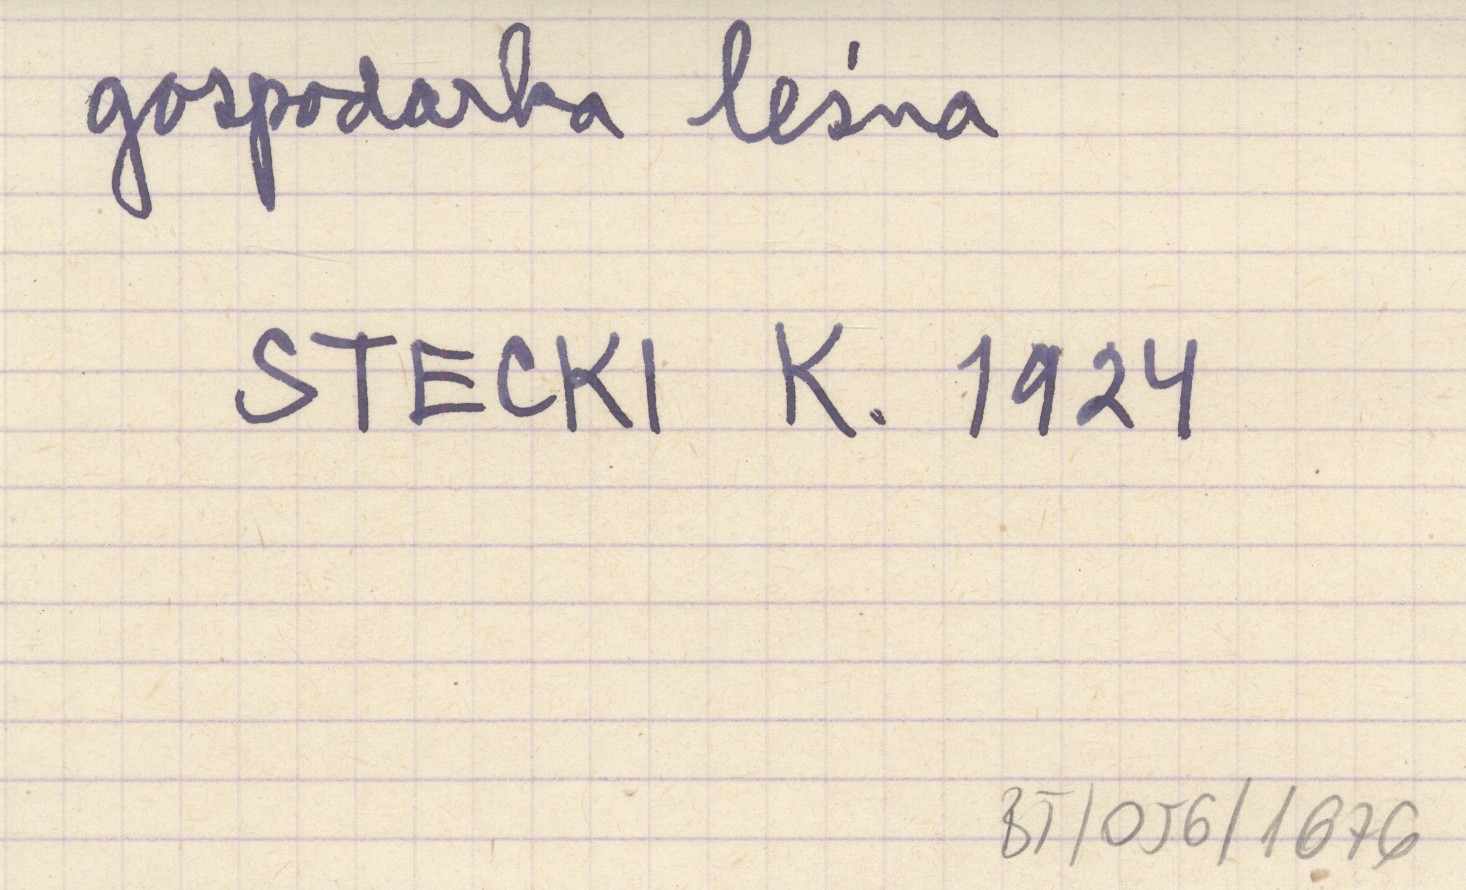 gospodarka leśna
STECKI K. 1924
BT/056/1676